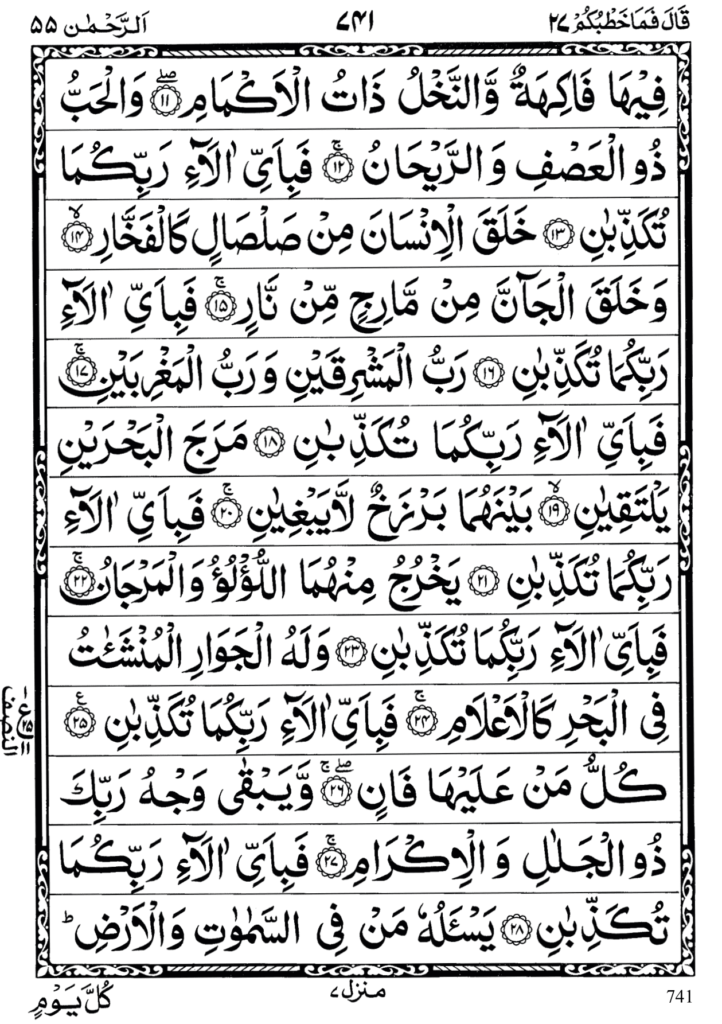 قَالَ فَمَا خَطْبُكُمْ ٢٧ ٧٤١ اَلرَّحْمٰن ٥٥
فِيْهَا فَاكِهَةٌ وَّالنَّخْلُ ذَاتُ الْاَكْمَامِ ۖ ﴿١١﴾ وَالْحَبُّ
ذُو الْعَصْفِ وَالرَّيْحَانُ ۚ ﴿١٢﴾ فَبِاَىِّ اٰلَآءِ رَبِّكُمَا
تُكَذِّبٰنِ ﴿١٣﴾ خَلَقَ الْاِنْسَانَ مِنْ صَلْصَالٍ كَالْفَخَّارِ ۙ ﴿١٤﴾
وَخَلَقَ الْجَآنَّ مِنْ مَّارِجٍ مِّنْ نَّارٍ ۚ ﴿١٥﴾ فَبِاَىِّ اٰلَآءِ
رَبِّكُمَا تُكَذِّبٰنِ ﴿١٦﴾ رَبُّ الْمَشْرِقَيْنِ وَرَبُّ الْمَغْرِبَيْنِ ۚ ﴿١٧﴾
فَبِاَىِّ اٰلَآءِ رَبِّكُمَا تُكَذِّبٰنِ ﴿١٨﴾ مَرَجَ الْبَحْرَيْنِ
يَلْتَقِيٰنِ ۙ ﴿١٩﴾ بَيْنَهُمَا بَرْزَخٌ لَّايَبْغِيٰنِ ۚ ﴿٢٠﴾ فَبِاَىِّ اٰلَآءِ
رَبِّكُمَا تُكَذِّبٰنِ ﴿٢١﴾ يَخْرُجُ مِنْهُمَا اللُّؤْلُؤُ وَالْمَرْجَانُ ۚ ﴿٢٢﴾
فَبِاَىِّ اٰلَآءِ رَبِّكُمَا تُكَذِّبٰنِ ﴿٢٣﴾ وَلَهُ الْجَوَارِ الْمُنْشَئٰتُ
فِى الْبَحْرِ كَالْاَعْلَامِ ۚ ﴿٢٤﴾ فَبِاَىِّ اٰلَآءِ رَبِّكُمَا تُكَذِّبٰنِ ﴿٢٥﴾ ع
كُلُّ مَنْ عَلَيْهَا فَانٍ ۖۚ ﴿٢٦﴾ وَّيَبْقٰى وَجْهُ رَبِّكَ
ذُو الْجَلٰلِ وَالْاِكْرَامِ ۚ ﴿٢٧﴾ فَبِاَىِّ اٰلَآءِ رَبِّكُمَا
تُكَذِّبٰنِ ﴿٢٨﴾ يَسْئَلُهٗ مَنْ فِى السَّمٰوٰتِ وَالْاَرْضِ ؕ
النصف
منزل ٧
كُلَّ يَوْمٍ
741